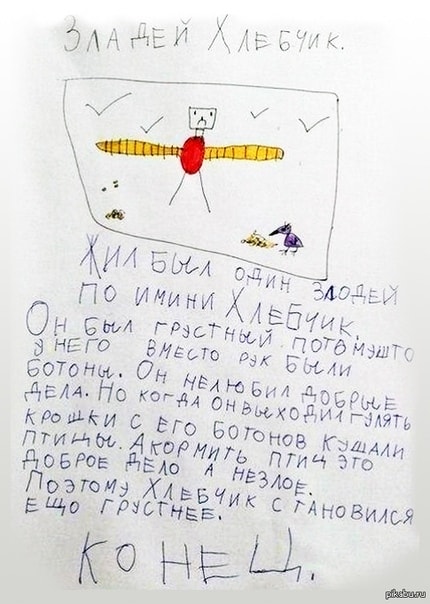 Зладей Хлебчик.
Жил был один злодей
по имини Хлебчик.
Он был грустный потомушто
у него вместо рук были
ботоны. Он нелюбил добрые
дела. Но когда он выходил гулять
крошки с его ботонов кушали
птицы. А кормить птиц это
доброе дело а незлое.
Поэтому Хлебчик становился
ещо грустнее.
Конец.
pikabu.ru